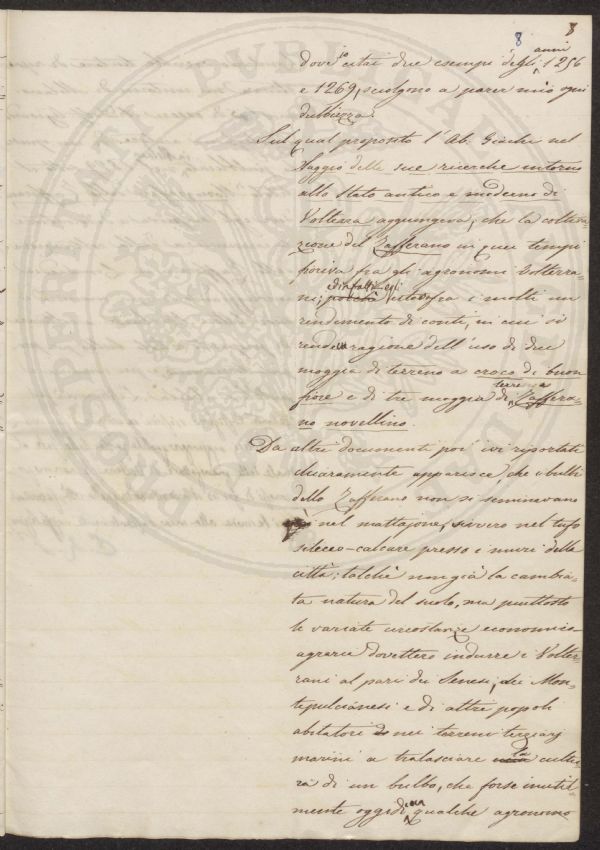 8 8
dove io citai due esempi degli anni 1256
e 1269, sciolgono a parer mio ogni
dubbiezza.
Sul qual proposito l'Ab. Giachi nel
Saggio delle sue ricerche intorno
allo Stato antico e moderno di
Volterra aggiungeva, che la coltiva-
zione del Zafferano in quei tempi
fioriva fra gli agronomi Volterra-
ni; diffatti egli fra i molti un
rendimento di conti, in cui si
rende ragione dell'uso di due
moggia di terreno a croco di buon
fiore e di tre moggia di terreno a Zaffera-
no novellino.
Da altri documenti poi ivi riportati
chiaramente apparisce, che i bulbi
dello Zafferano non si seminavano
già nel mattajone, sivvero nel tufo
siliceo-calcare presso i muri della
città; talchè non già la cambia-
ta natura del suolo, ma piuttosto
le variate circostanze economico-
agrarie dovettero indurre i Volter-
rani al pari dei Senesi, dei Mon-
tepulcianesi e di altri popoli
abitatori nei terreni terziarj
marini a tralasciare la cultu-
ra di un bulbo, che forse inutil-
mente oggidì con qualche agronomo
PROSPERITATI PUBLICAE